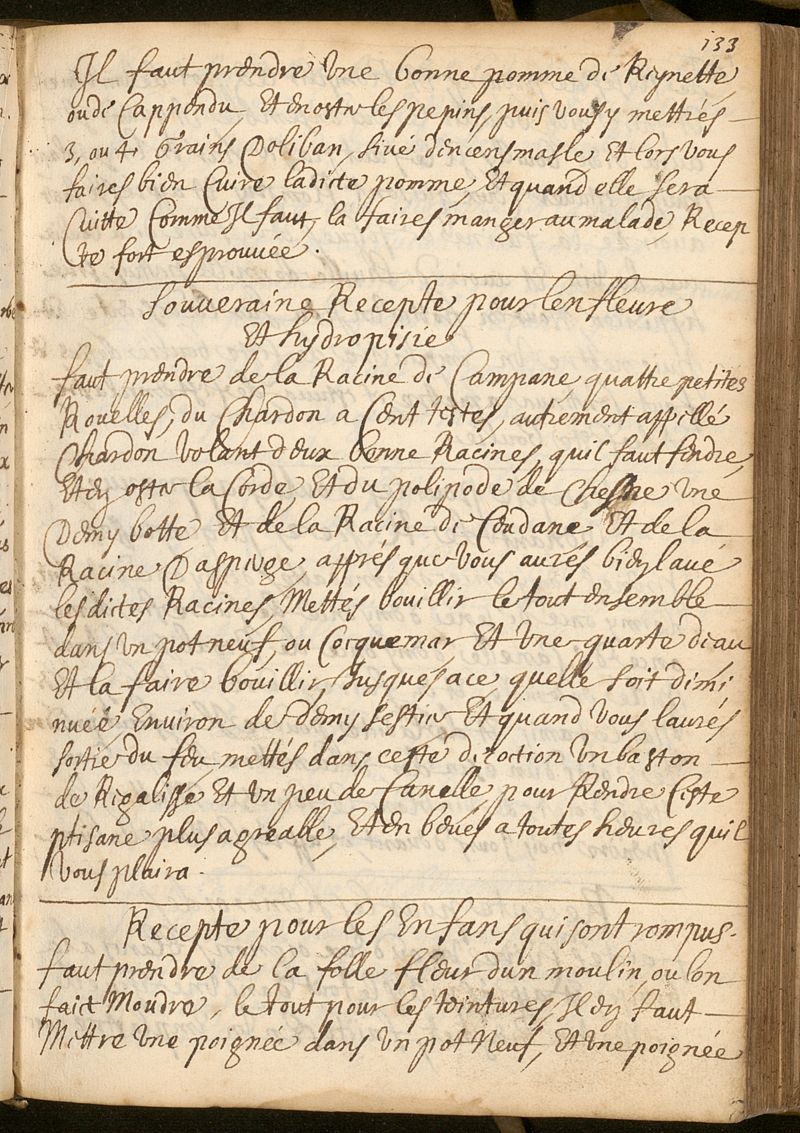 133
Il faut prendre une bonne pomme de Reynette
ou de Cappendu, Et en oster les pepins, puis vous y mettrés
3, ou 4, Grains Doliban, sive dencens masle Et lors vous
faires bien Cuire ladicte pomme, Et quand elle sera
Cuitte Comme Il faut, la faires manger au malade, Recep
te fort esprouvée.
Souveraine Recepte pour lenfleure
Et hydropisie
faut prendre de la Racine de Campane quattre petites
Rouelles, du Chardon a Cent testes, autrement appellé
Chardon volant deux bonne Racines, quil faut fendre,
Et en oster la Corde, Et du polipode de Chesne une
Demy botte Et de la Racine de Et de la
Racine Dasperge, apprés que vous aurés bien lavé
lesdictes Racines, Mettés bouillir le tout ensemble
dans un pot neuf, ou Cocquemar Et une quarte deau
Et la faire bouillir, Jusques ace quelle soit dimi
nuéé, Environ de demy sestier Et quand vous laurés
sortie du feu, mettés dans ceste decoction un baston
de Regalisse Et un peu de Canelle pour Rendre Ceste
ptisane plus agreable, Et en beues a toutes heures quil
vous plaira.
Recepte pour les Enfans qui sont rompus.
faut prendre de la folle fleur dun moulin, ou lon
faict Moudre, le tout pour les teintures, Il en faut
Mettre une poignée dans un pot Neuf, Et une poignée